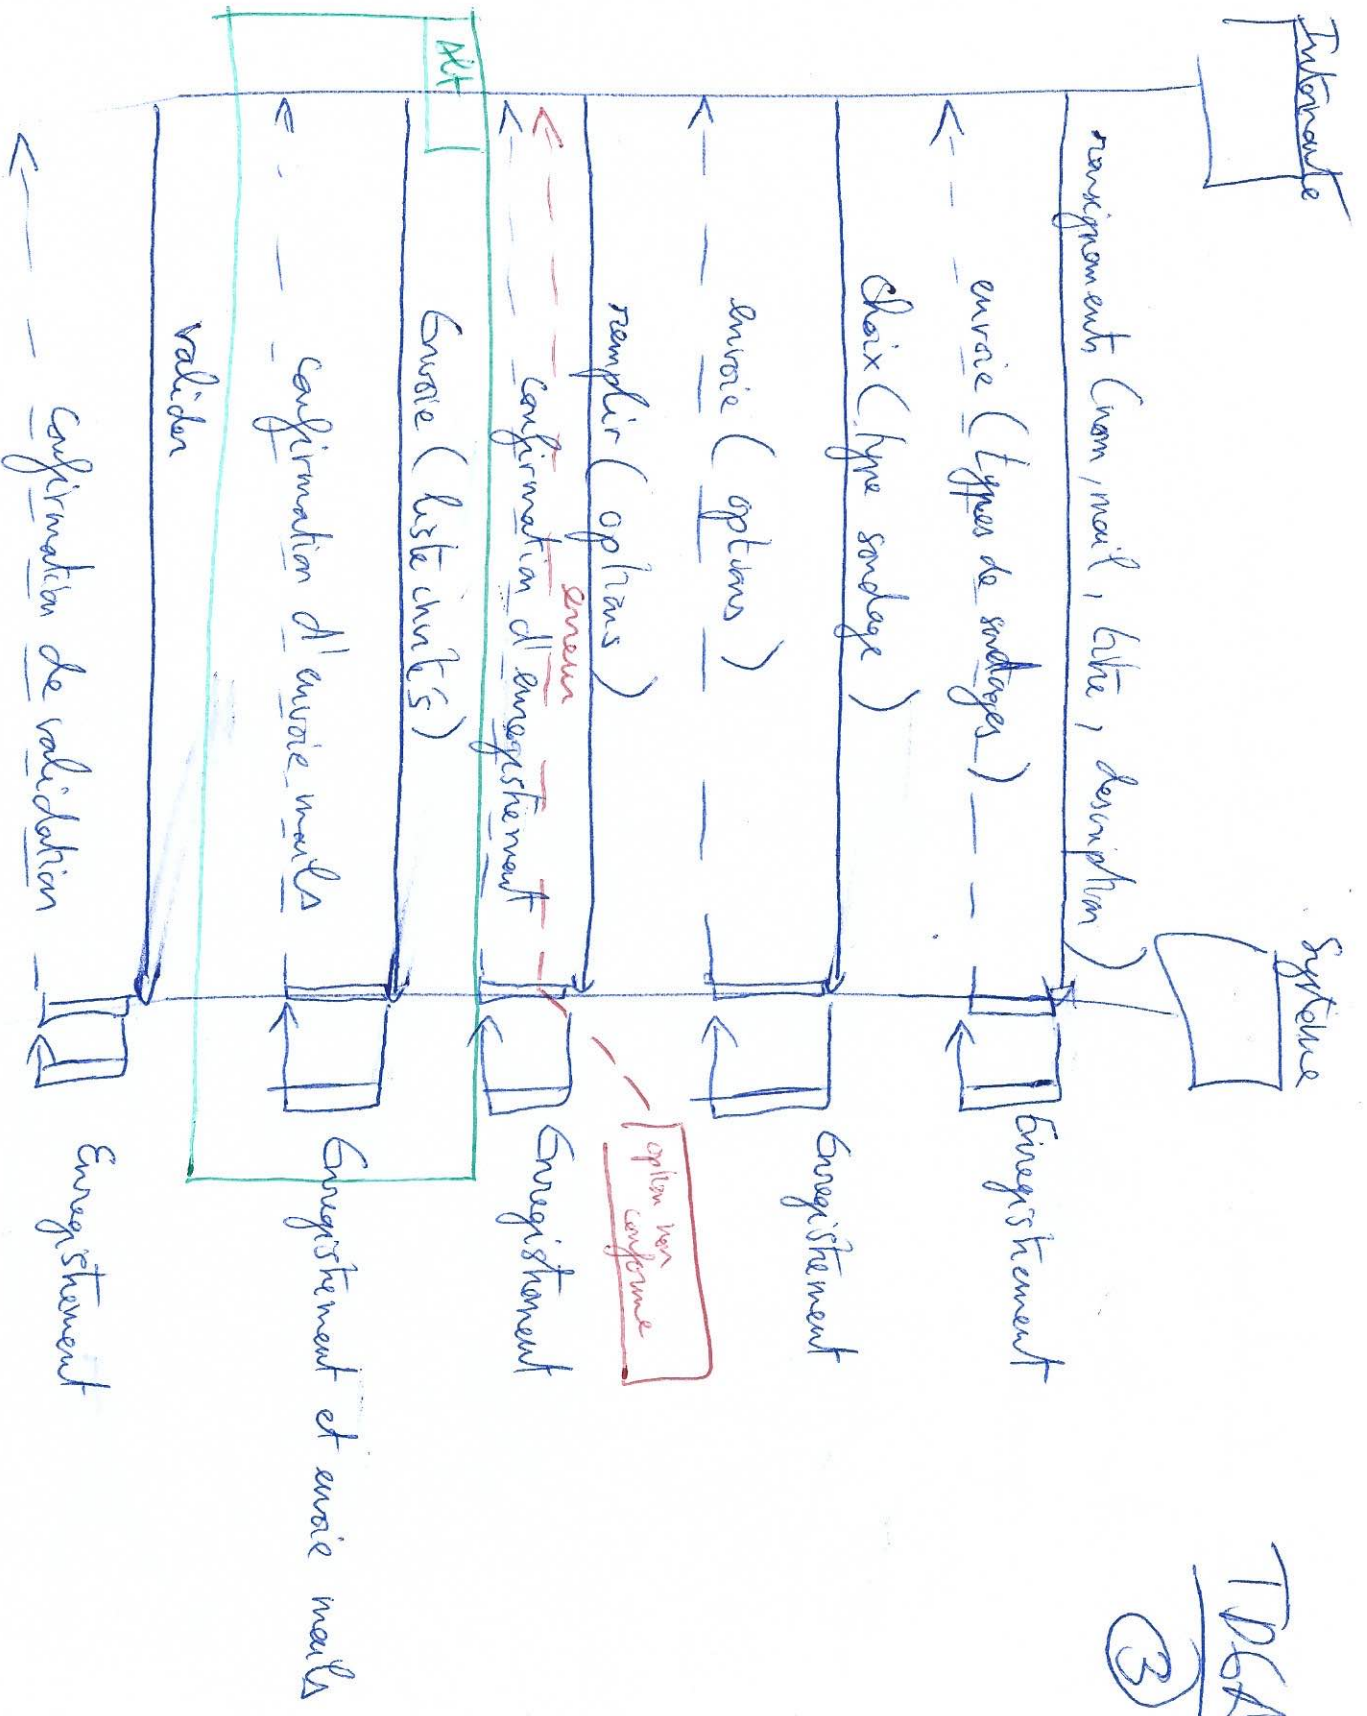 Internaute
Système
renseignements (nom, mail, titre, description)
Enregistrement
envoie (types de sondages)
choix (type sondage)
Enregistrement
envoie (options)
remplir (options)
option non
conforme
erreur
confirmation d'enregistrement
Enregistrement
Alt
Envoie (liste invités)
Enregistrement et envoie mails
confirmation d'envoie mails
valider
Enregistrement
confirmation de validation
3